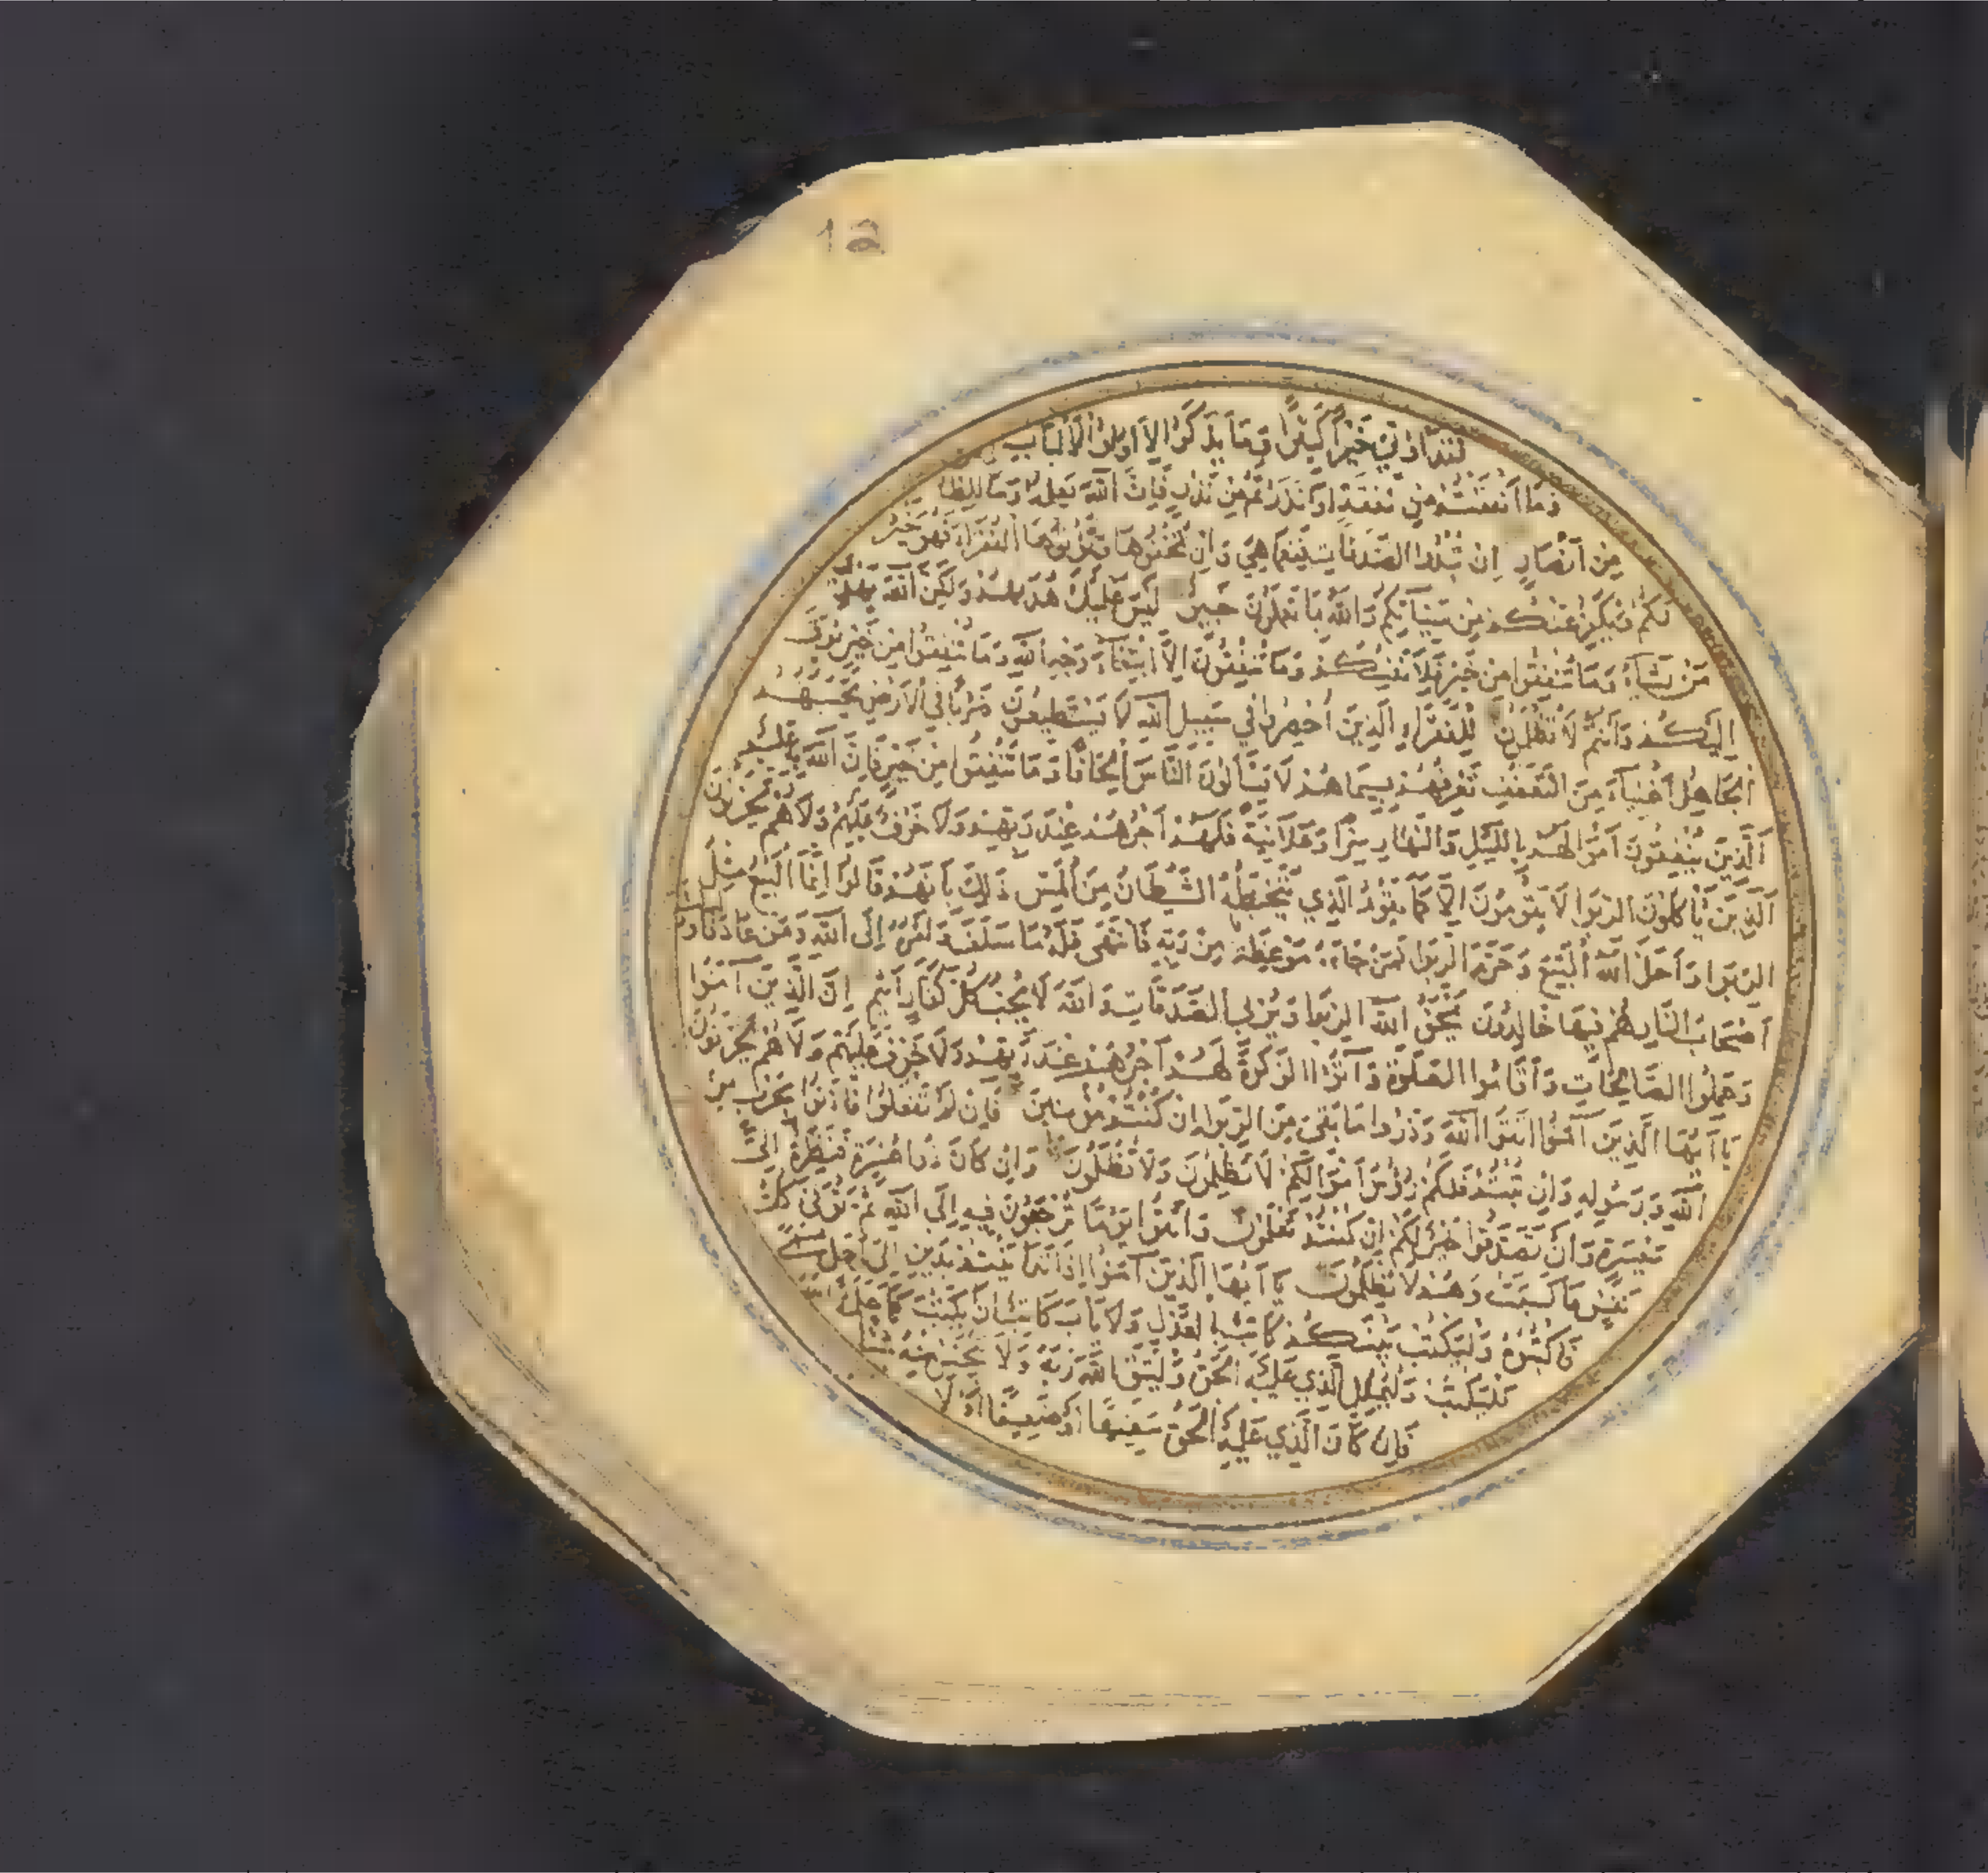 12
فَقَدْ أُوتِيَ خَيْرًا كَثِيرًا وَمَا يَذَّكَّرُ إِلَّا أُولُوا الْأَلْبَابِ
وَمَا أَنْفَقْتُمْ مِنْ نَفَقَةٍ أَوْ نَذَرْتُمْ مِنْ نَذْرٍ فَإِنَّ اللَّهَ يَعْلَمُهُ وَمَا لِلظَّا
مِنْ أَنْصَارٍ إِنْ تُبْدُوا الصَّدَقَاتِ فَنِعِمَّا هِيَ وَإِنْ تُخْفُوهَا وَتُؤْتُوهَا الْفُقَرَاءَ فَهُوَ خَيْرٌ
لَكُمْ وَيُكَفِّرُ عَنْكُمْ مِنْ سَيِّآتِكُمْ وَاللَّهُ بِمَا تَعْمَلُونَ خَبِيرٌ لَيْسَ عَلَيْكَ هُدَيهُمْ وَلَكِنَّ اللَّهَ يَهْدِي
مَنْ يَشَاءُ وَمَا تُنْفِقُوا مِنْ خَيْرٍ فَلِأَنْفُسِكُمْ وَمَا تُنْفِقُونَ إِلَّا ابْتِغَاءَ وَجْهِ اللَّهِ وَمَا تُنْفِقُوا مِنْ خَيْرٍ يُوَفَّ
إِلَيْكُمْ وَأَنْتُمْ لَا تُظْلَمُونَ لِلْفُقَرَاءِ الَّذِينَ أُحْصِرُوا فِي سَبِيلِ اللَّهِ لَا يَسْتَطِيعُونَ ضَرْبًا فِي الْأَرْضِ يَحْسَبُهُمُ
الْجَاهِلُ أَغْنِيَاءَ مِنَ التَّعَفُّفِ تَعْرِفُهُمْ بِسِيمَاهُمْ لَا يَسْأَلُونَ النَّاسَ إِلْحَافًا وَمَا تُنْفِقُوا مِنْ خَيْرٍ فَإِنَّ اللَّهَ بِهِ عَلِيمٌ
الَّذِينَ يُنْفِقُونَ أَمْوَالَهُمْ بِاللَّيْلِ وَالنَّهَارِ سِرًّا وَعَلَانِيَةً فَلَهُمْ أَجْرُهُمْ عِنْدَ رَبِّهِمْ وَلَا خَوْفٌ عَلَيْهِمْ وَلَا هُمْ يَحْزَنُونَ
الَّذِينَ يَأْكُلُونَ الرِّبَوا لَا يَقُومُونَ إِلَّا كَمَا يَقُومُ الَّذِي يَتَخَبَّطُهُ الشَّيْطَانُ مِنَ الْمَسِّ ذَلِكَ بِأَنَّهُمْ قَالُوا إِنَّمَا الْبَيْعُ مِثْلُ
الرِّبَوا وَأَحَلَّ اللَّهُ الْبَيْعَ وَحَرَّمَ الرِّبَوا فَمَنْ جَاءَهُ مَوْعِظَةٌ مِنْ رَبِّهِ فَانْتَهَى فَلَهُ مَا سَلَفَ وَأَمْرُهُ إِلَى اللَّهِ وَمَنْ عَادَ فَأُولَئِكَ
أَصْحَابُ النَّارِ هُمْ فِيهَا خَالِدُونَ يَمْحَقُ اللَّهُ الرِّبَوا وَيُرْبِي الصَّدَقَاتِ وَاللَّهُ لَا يُحِبُّ كُلَّ كَفَّارٍ أَثِيمٍ إِنَّ الَّذِينَ آمَنُوا
وَعَمِلُوا الصَّالِحَاتِ وَأَقَامُوا الصَّلَوةَ وَآتَوُا الزَّكَوةَ لَهُمْ أَجْرُهُمْ عِنْدَ رَبِّهِمْ وَلَا خَوْفٌ عَلَيْهِمْ وَلَا هُمْ يَحْزَنُونَ
يَا أَيُّهَا الَّذِينَ آمَنُوا اتَّقُوا اللَّهَ وَذَرُوا مَا بَقِيَ مِنَ الرِّبَوا إِنْ كُنْتُمْ مُؤْمِنِينَ فَإِنْ لَمْ تَفْعَلُوا فَأْذَنُوا بِحَرْبٍ مِنَ
اللَّهِ وَرَسُولِهِ وَإِنْ تُبْتُمْ فَلَكُمْ رُؤُسُ أَمْوَالِكُمْ لَا تَظْلِمُونَ وَلَا تُظْلَمُونَ وَإِنْ كَانَ ذُو عُسْرَةٍ فَنَظِرَةٌ إِلَى
مَيْسَرَةٍ وَأَنْ تَصَدَّقُوا خَيْرٌ لَكُمْ إِنْ كُنْتُمْ تَعْلَمُونَ وَاتَّقُوا يَوْمًا تُرْجَعُونَ فِيهِ إِلَى اللَّهِ ثُمَّ تُوَفَّى كُلُّ
نَفْسٍ مَا كَسَبَتْ وَهُمْ لَا يُظْلَمُونَ يَا أَيُّهَا الَّذِينَ آمَنُوا إِذَا تَدَايَنْتُمْ بِدَيْنٍ إِلَى أَجَلٍ مُسَمًّى
فَاكْتُبُوهُ وَلْيَكْتُبْ بَيْنَكُمْ كَاتِبٌ بِالْعَدْلِ وَلَا يَأْبَ كَاتِبٌ أَنْ يَكْتُبَ كَمَا عَلَّمَهُ اللَّهُ
فَلْيَكْتُبْ وَلْيُمْلِلِ الَّذِي عَلَيْهِ الْحَقُّ وَلْيَتَّقِ اللَّهَ رَبَّهُ وَلَا يَبْخَسْ مِنْهُ شَيْئًا
فَإِنْ كَانَ الَّذِي عَلَيْهِ الْحَقُّ سَفِيهًا أَوْ ضَعِيفًا أَوْ لَا